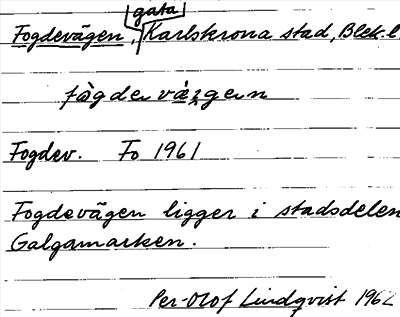 gata
Fogdevägen, Karlskrona stad, Blek. l
fògdevä́gen
Fogdev. Fo 1961
Fogdevägen ligger i stadsdelen
Galgamarken.
Per-Olof Lindqvist 1962